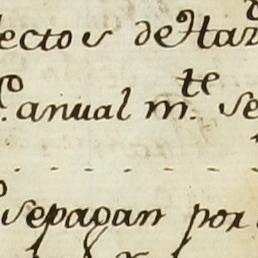 lectos de Haz
anual m.te se
sepagan por